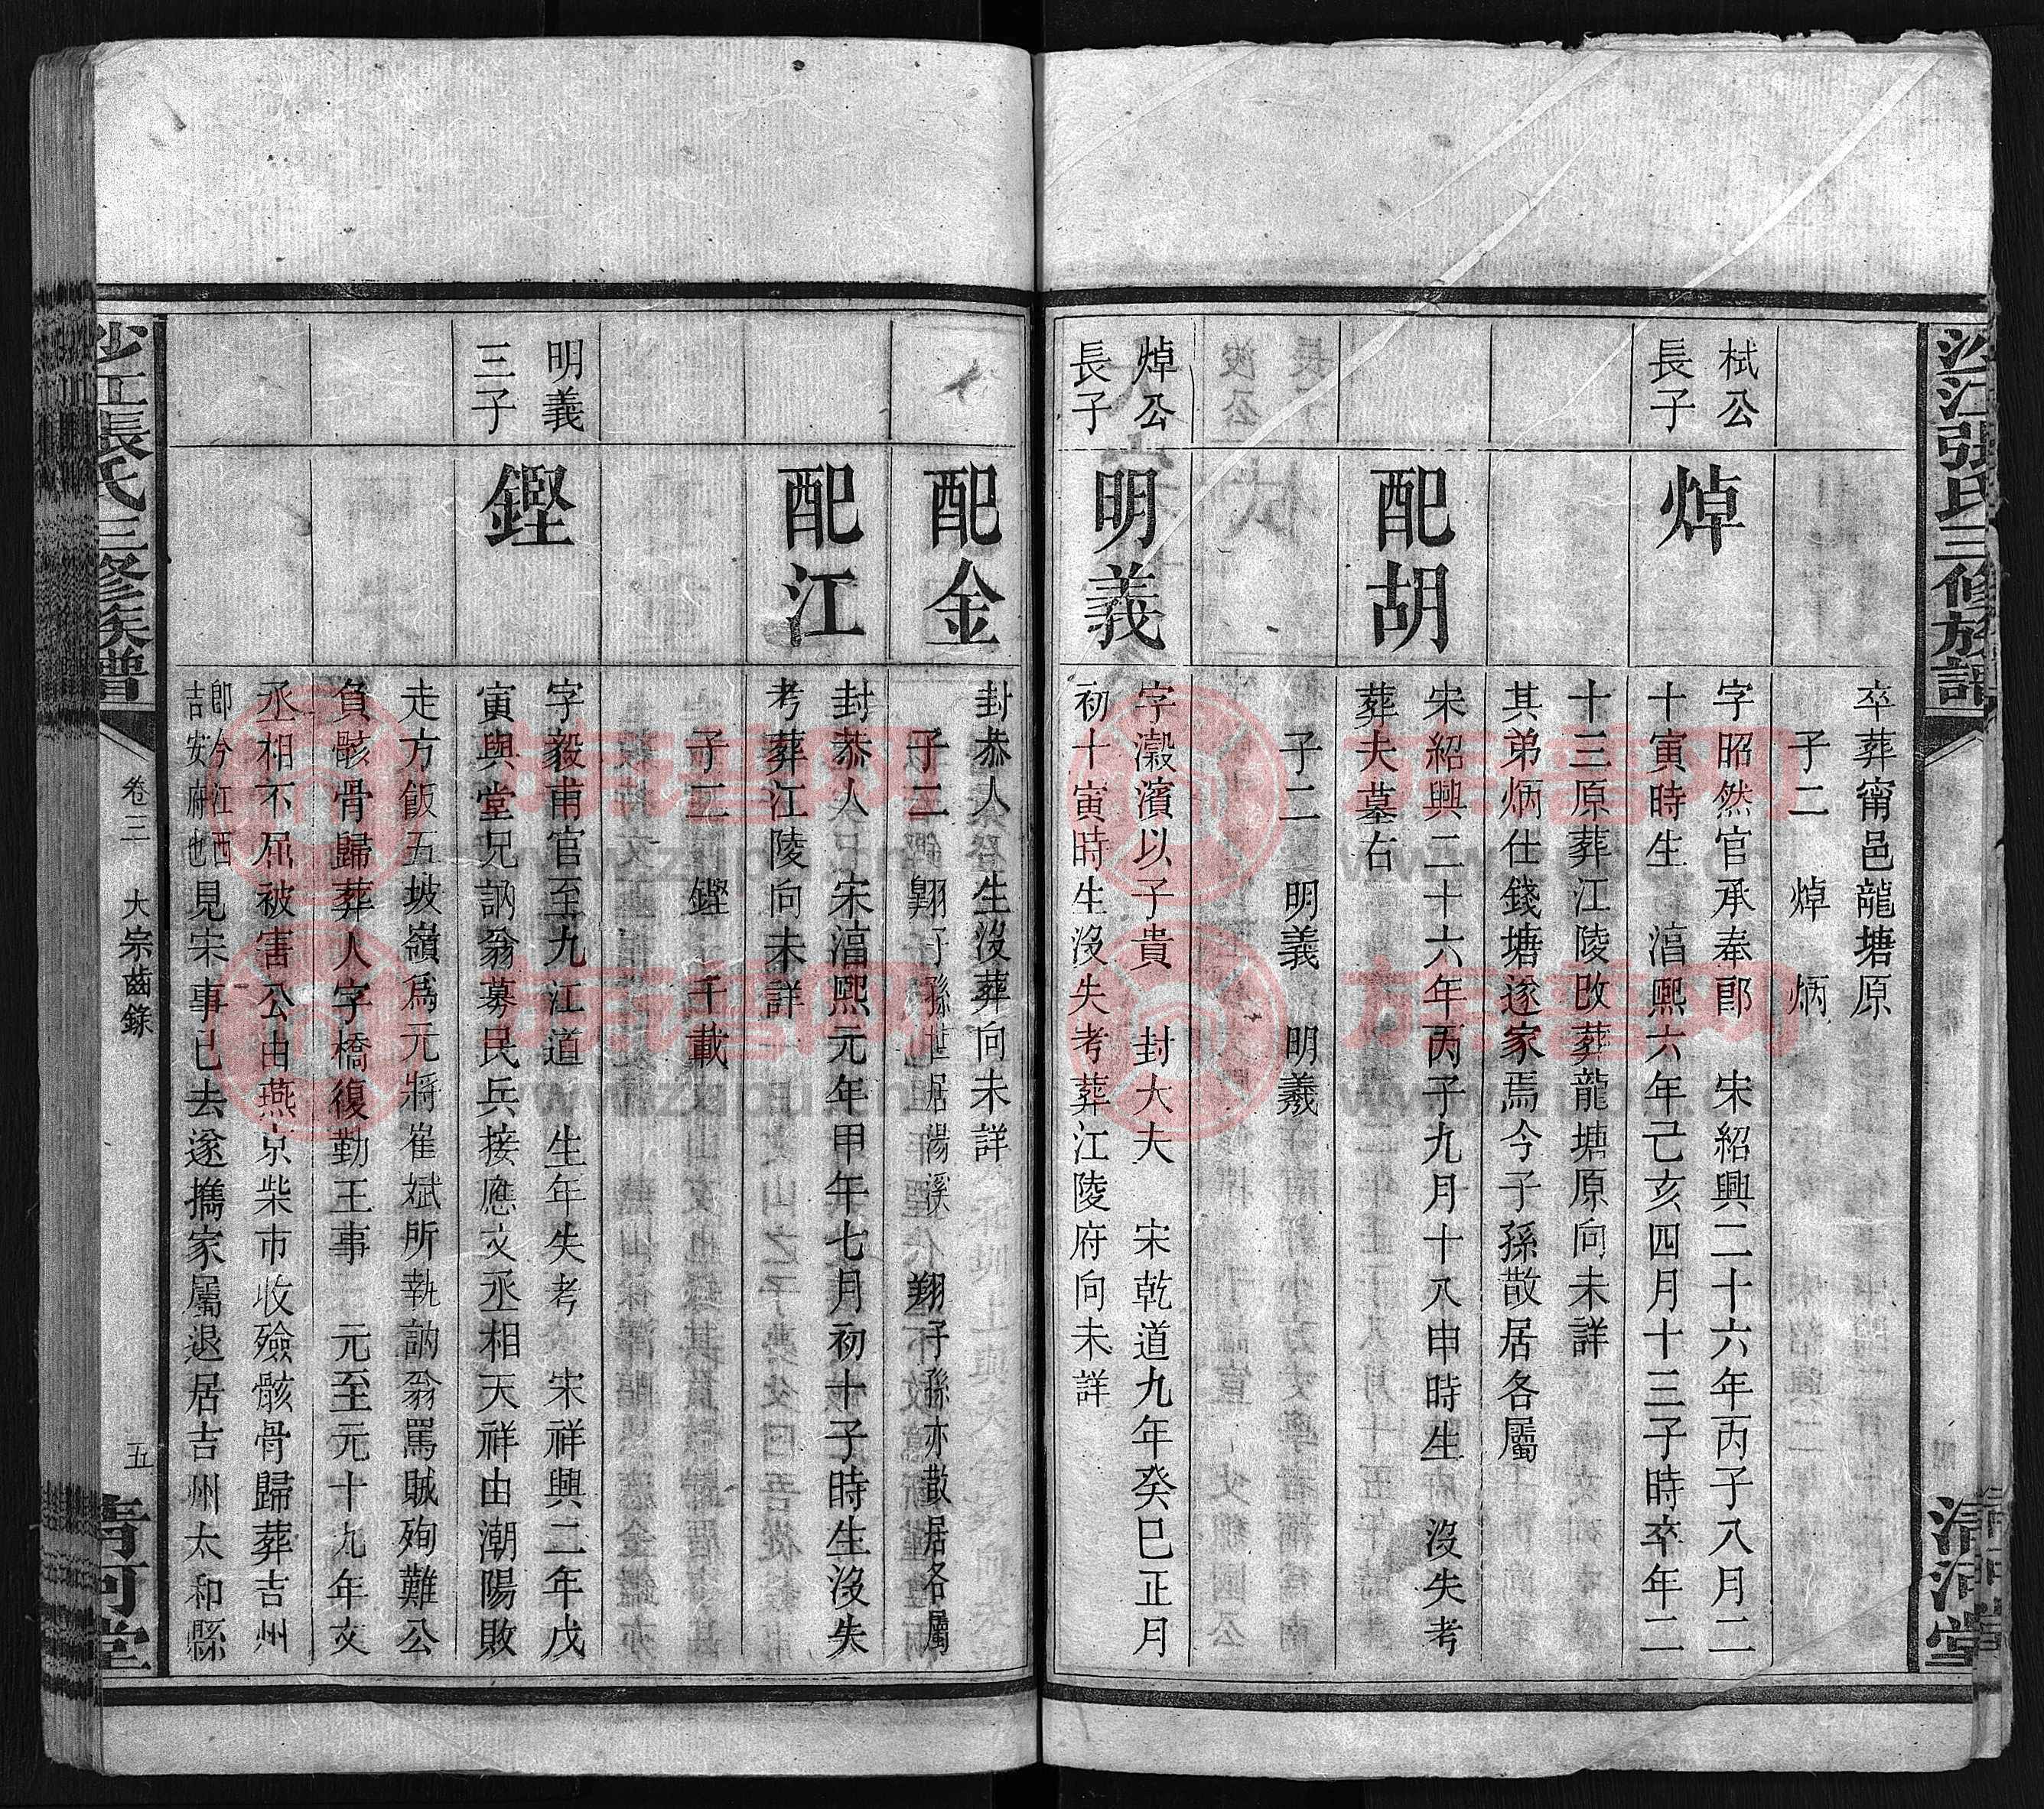 沙江張氏三修族譜
清河堂
卒葬甯邑龍塘原
子二 焯 炳
栻公
長子
焯
字昭然官承奉郎 宋紹興二十六年丙子八月二
十寅時生 淳熙六年己亥四月十三子時卒年二
十三原葬江陵改葬龍塘原向未詳
其弟炳仕錢塘遂家焉今子孫散居各屬
配胡
宋紹興二十六年丙子九月十八申時生 沒失考
葬夫墓右
子二 明義 明羲
焯公
長子
明義
字瀫濱以子貴 封大夫 宋乾道九年癸巳正月
初十寅時生沒失考葬江陵府向未詳
配金
封恭人 生沒葬向未詳
子二 翱子孫世居湯溪 翔子孫亦散居各屬
配江
封恭人 宋淳熙元年甲午七月初十子時生沒失
考葬江陵向未詳
子二 鏗 千載
明義
三子
鏗
字毅甫官至九江道 生年失考 宋祥興二年戊
寅與堂兄訥翁募民兵接應文丞相天祥由潮陽敗
走方飯五坡嶺爲元將崔斌所執訥翁罵賊殉難公
負骸骨歸葬人字橋復勤王事 元至元十九年文
丞相不屈被害公由燕京柴市收殮骸骨歸葬吉州
即今江西
吉安府也
見宋事已去遂攜家屬退居吉州太和縣
沙江張氏三修族譜
卷三 大宗齒錄
五
清河堂